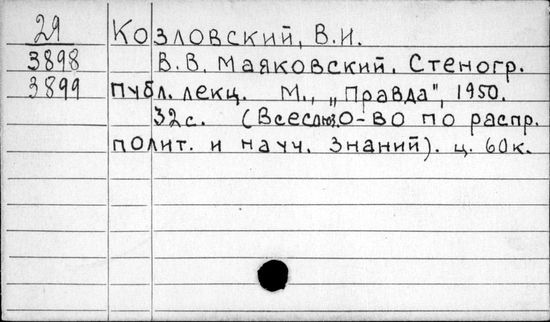 29 Козловский, В.И.
3898 В.В. Маяковский. Стеногр.
3899 публ. лекц. М., „Правда", 1950.
32с. (Всесоюз. О-во по распр.
полит. и науч. знаний). ц. 60к.